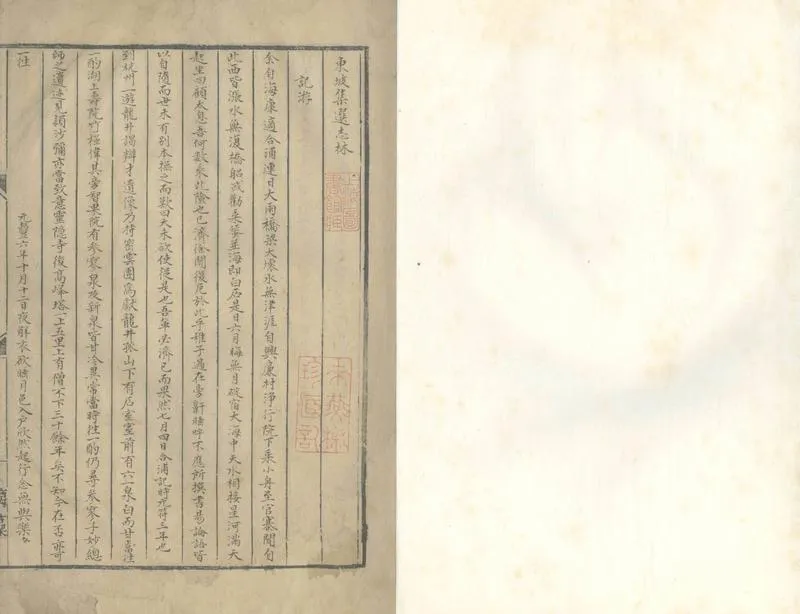 東坡集選志林
記游
余自海康適合浦連日大雨橋梁大壞水無津涯自興廉村淨行院下乘小舟至官寨聞自
此西皆漲水無復橋船或勸乘蜑並海即白石是日六月晦無月碇宿大海中天水相接星河滿天
起坐四顧太息吾何數乘此險也已濟徐聞復厄於此乎稚子過在旁鼾睡呼不應所撰書易論語皆
以自隨而世未有別本撫之而歎曰天未欲使從是也吾輩必濟已而果然七月四日合浦記時元符三年也
到杭州一遊龍井謁辯才遺像乃持密雲團為獻龍井孤山下有石室室前有六一泉白而甘當往
一酌湖上壽院竹極偉其旁智果院有參寥泉及新泉皆甘冷異常當時往一酌仍尋參寥子妙總
師之遺迹見穎沙彌亦當致意靈隱寺後高峰塔一上五里上有僧不下三十餘年矣不知今在否亦可
一往
元豐六年十月十二日夜解衣欲睡月色入戶欣然起行念無與樂
上海圖書館藏